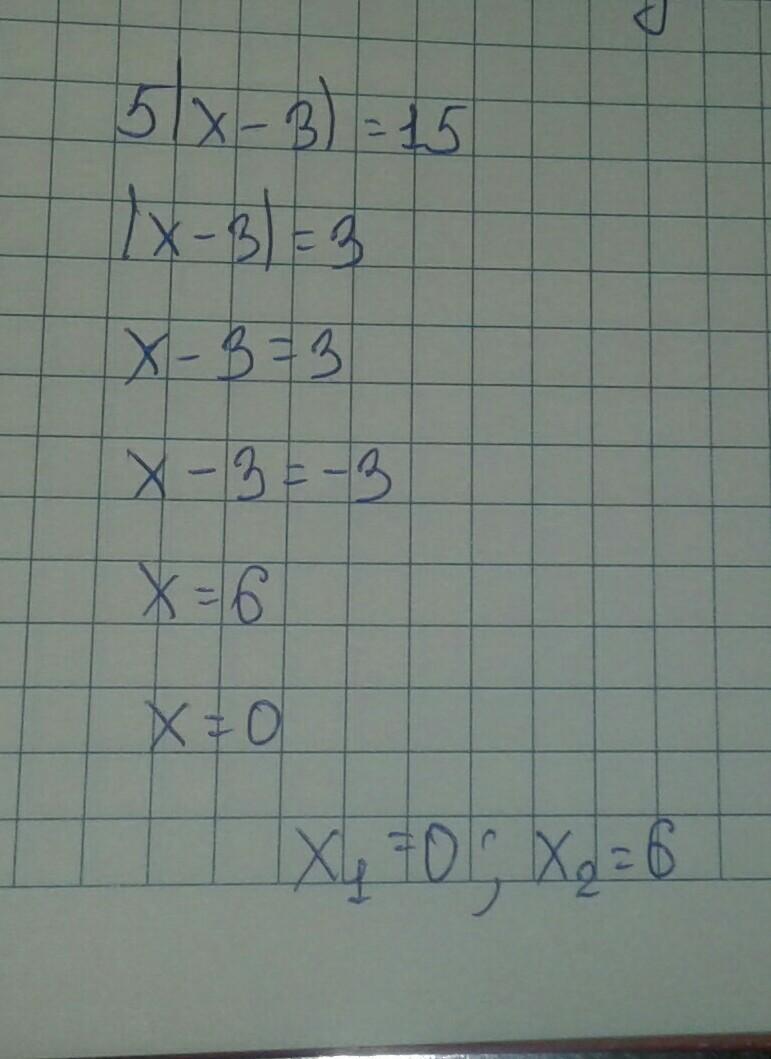 5|x-3|=15
|x-3|=3
x-3=3
x-3=-3
x=6
x=0
x₁=0; x₂=6